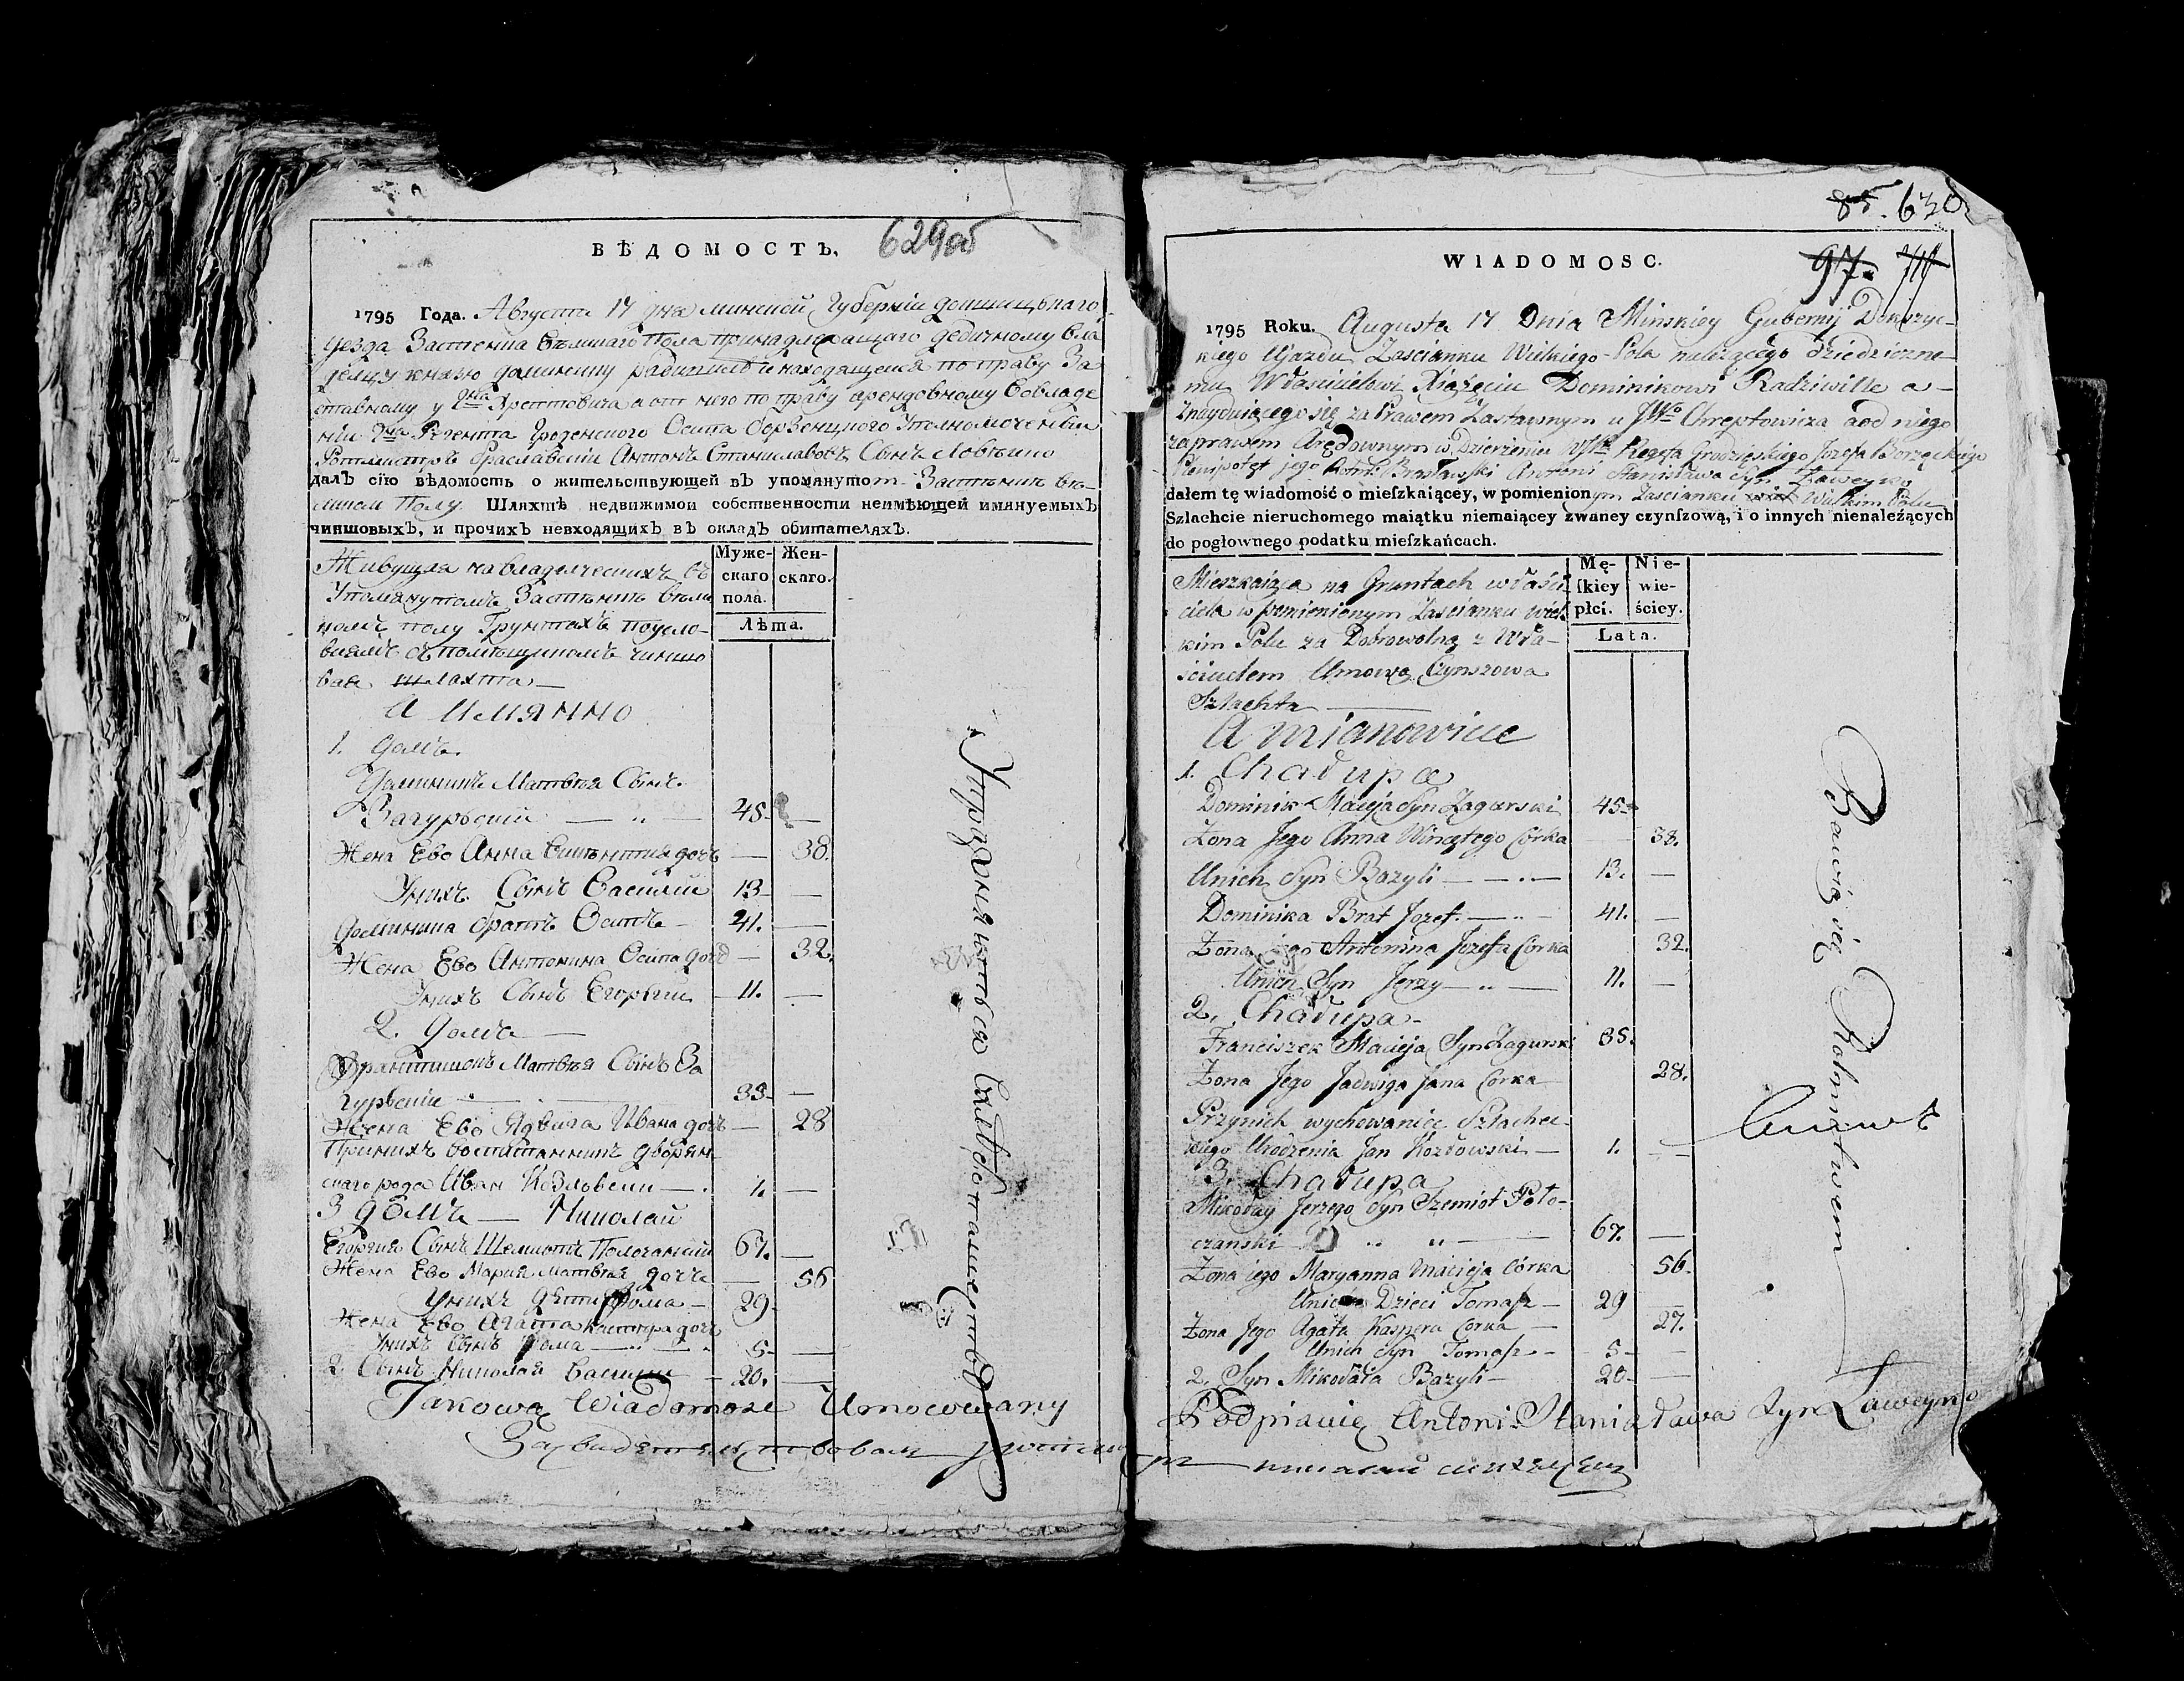 629об
ВѢДОМОСТЬ,
1795 Года. Августа 17 дня минской Губерніи докшицкаго
уезда Застенка Великаго Пола принадлежащаго дедичному вла
делцу князю доминику радивилѣ и находящемся по праву За
ставному у Хрептовича а от него по праву арендовному Во владе
нии Регента Гроденского Осипа борженцкого Уполномоченный
Ротмистръ браславский Антонъ Станиславовъ Сынъ Ловейко
далъ сію вѣдомость о жительствующей въ упомянутом Застенке ве-
ликом Полу. Шляхтѣ недвижимой собственности неимѣющей имянуемыхъ
чиншовыхъ, и прочихъ невходящихъ въ окладъ обитателяхъ.
Муже-
скаго
пола.
Жен-
скаго.
Лѣта.
Живущая на владелческихъ въ
Упомянутомъ Застенке вели
комъ полу Грунтахъ поусло-
виямъ съ помещикомъ чиншо
вая шляхта —
А ИМЯННО
1. домъ.
Доминикъ Матвея Сынъ
Загурский — „ — 45. —
Жена Ево Анна Викентия дочь — 38.
У нихъ Сынъ Василий 13. —
Доминика братъ Осипъ — 41. —
Жена Ево Антонина Осипа дочь — 32.
У нихъ Сынъ Егорий — 11. —
2. Домъ —
Францишекъ Матвея Сынъ За
гурский 35. —
Жена Ево Ядвига Ивана дочь — 28
При нихъ воспитанникъ дворян
скаго рода Иван Козловски — 1. —
3 домъ — Николай
Егория Сынъ Шемиотъ Полочанский 67. —
Жена Ево Мария Матвея дочь — 56
У нихъ дети Фома — 29.
Жена Ево Агата Каспера дочь
У нихъ Сынъ Фома — 5. —
2. Сынъ Николая Василий — 20. —
85. 630
97.
WIADOMOSC.
1795 Roku. Augusta 17 Dnia Minskiey Gubernij Dokszyc-
kiego Ujazdu Zascianku Wielkiego-Pola należącego dziedziczne
mu Właścicielowi Xiążęciu Dominikowi Radziwille a-
znayduiącego się za Prawem Zastawnym u Chreptowicza a od niego
za prawem Arędownym w Dzierżeniu Regęta Grodzięskiego Jozefa Borzęckiego
Plenipotęt jego Rotm: Brasławski Antoni Stanisława Syn Ławeyko
dałem tę wiadomość o mieſzkaiącey, w pomienionym Zascianku Wielkim Polu
Szlachcie nieruchomego maiątku niemaiącey zwaney czynſzową, i o innych nienależących
do pogłownego podatku mieſzkańcach.
Mę-
ſkiey
płci.
Nie-
wie-
ściey.
Lata.
Mieszkaiąca na Gruntach właści
ciela w pomienionym Zascianku Wiel
kim Polu za Dobrowolną z Wła-
ścicielem Umową Czynszowa
Szlachta —
A mianowicie
1. Chałupa
Dominik Macieja Syn Zagurski 45.
Zona Jego Anna Wincętego Corka — 38.
U nich Syn Bazyli — 13. —
Dominika Brat Jozef — 41. —
Zona jego Antonina Jozefa Corka 32.
U nich Syn Jerzy — 11. —
2. Chałupa —
Franciszek Macieja Syn Zagurski 35.
Zona Jego Jadwiga Jana Corka 28.
Przy nich wychowaniec Szlachec-
kiego Urodzenia Jan Kozłowski — 1. —
3. Chałupa
Mikołay Jerzego Syn Szemiot Poło-
czanski 67. —
Zona jego Maryanna Macieja Córka 56.
U nich Dzieci Tomasz — 29 —
Zona Jego Agata Kaspera Corka — 27.
U nich Syn Tomasz — 5 — —
2. Syn Mikołaia Bazyli — 20 — —
Упражняются Хлебопашеством
Bawią się Rolnictwem
Takową Wiadomosc Umocowany Podpisuię Antoni Stanisława Syn Ławeyko
Засвидетелствовалъ